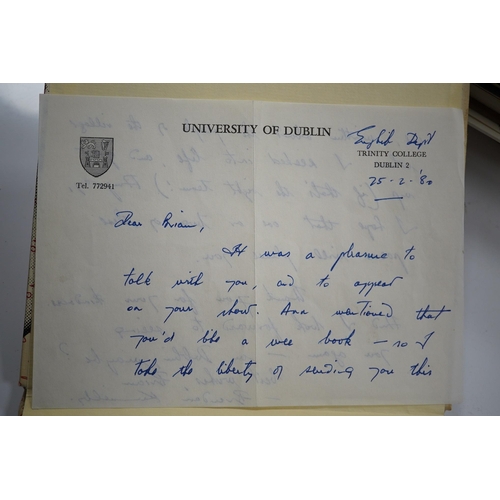 UNIVERSITY OF DUBLIN
English Dep't
TRINITY COLLEGE
DUBLIN 2
Tel. 772941
25-2-'80
Dear Brian,
It was a pleasure to
talk with you, and to appear
on your show. Ann mentioned that
you'd like a wee book — so I
take the liberty of sending you this